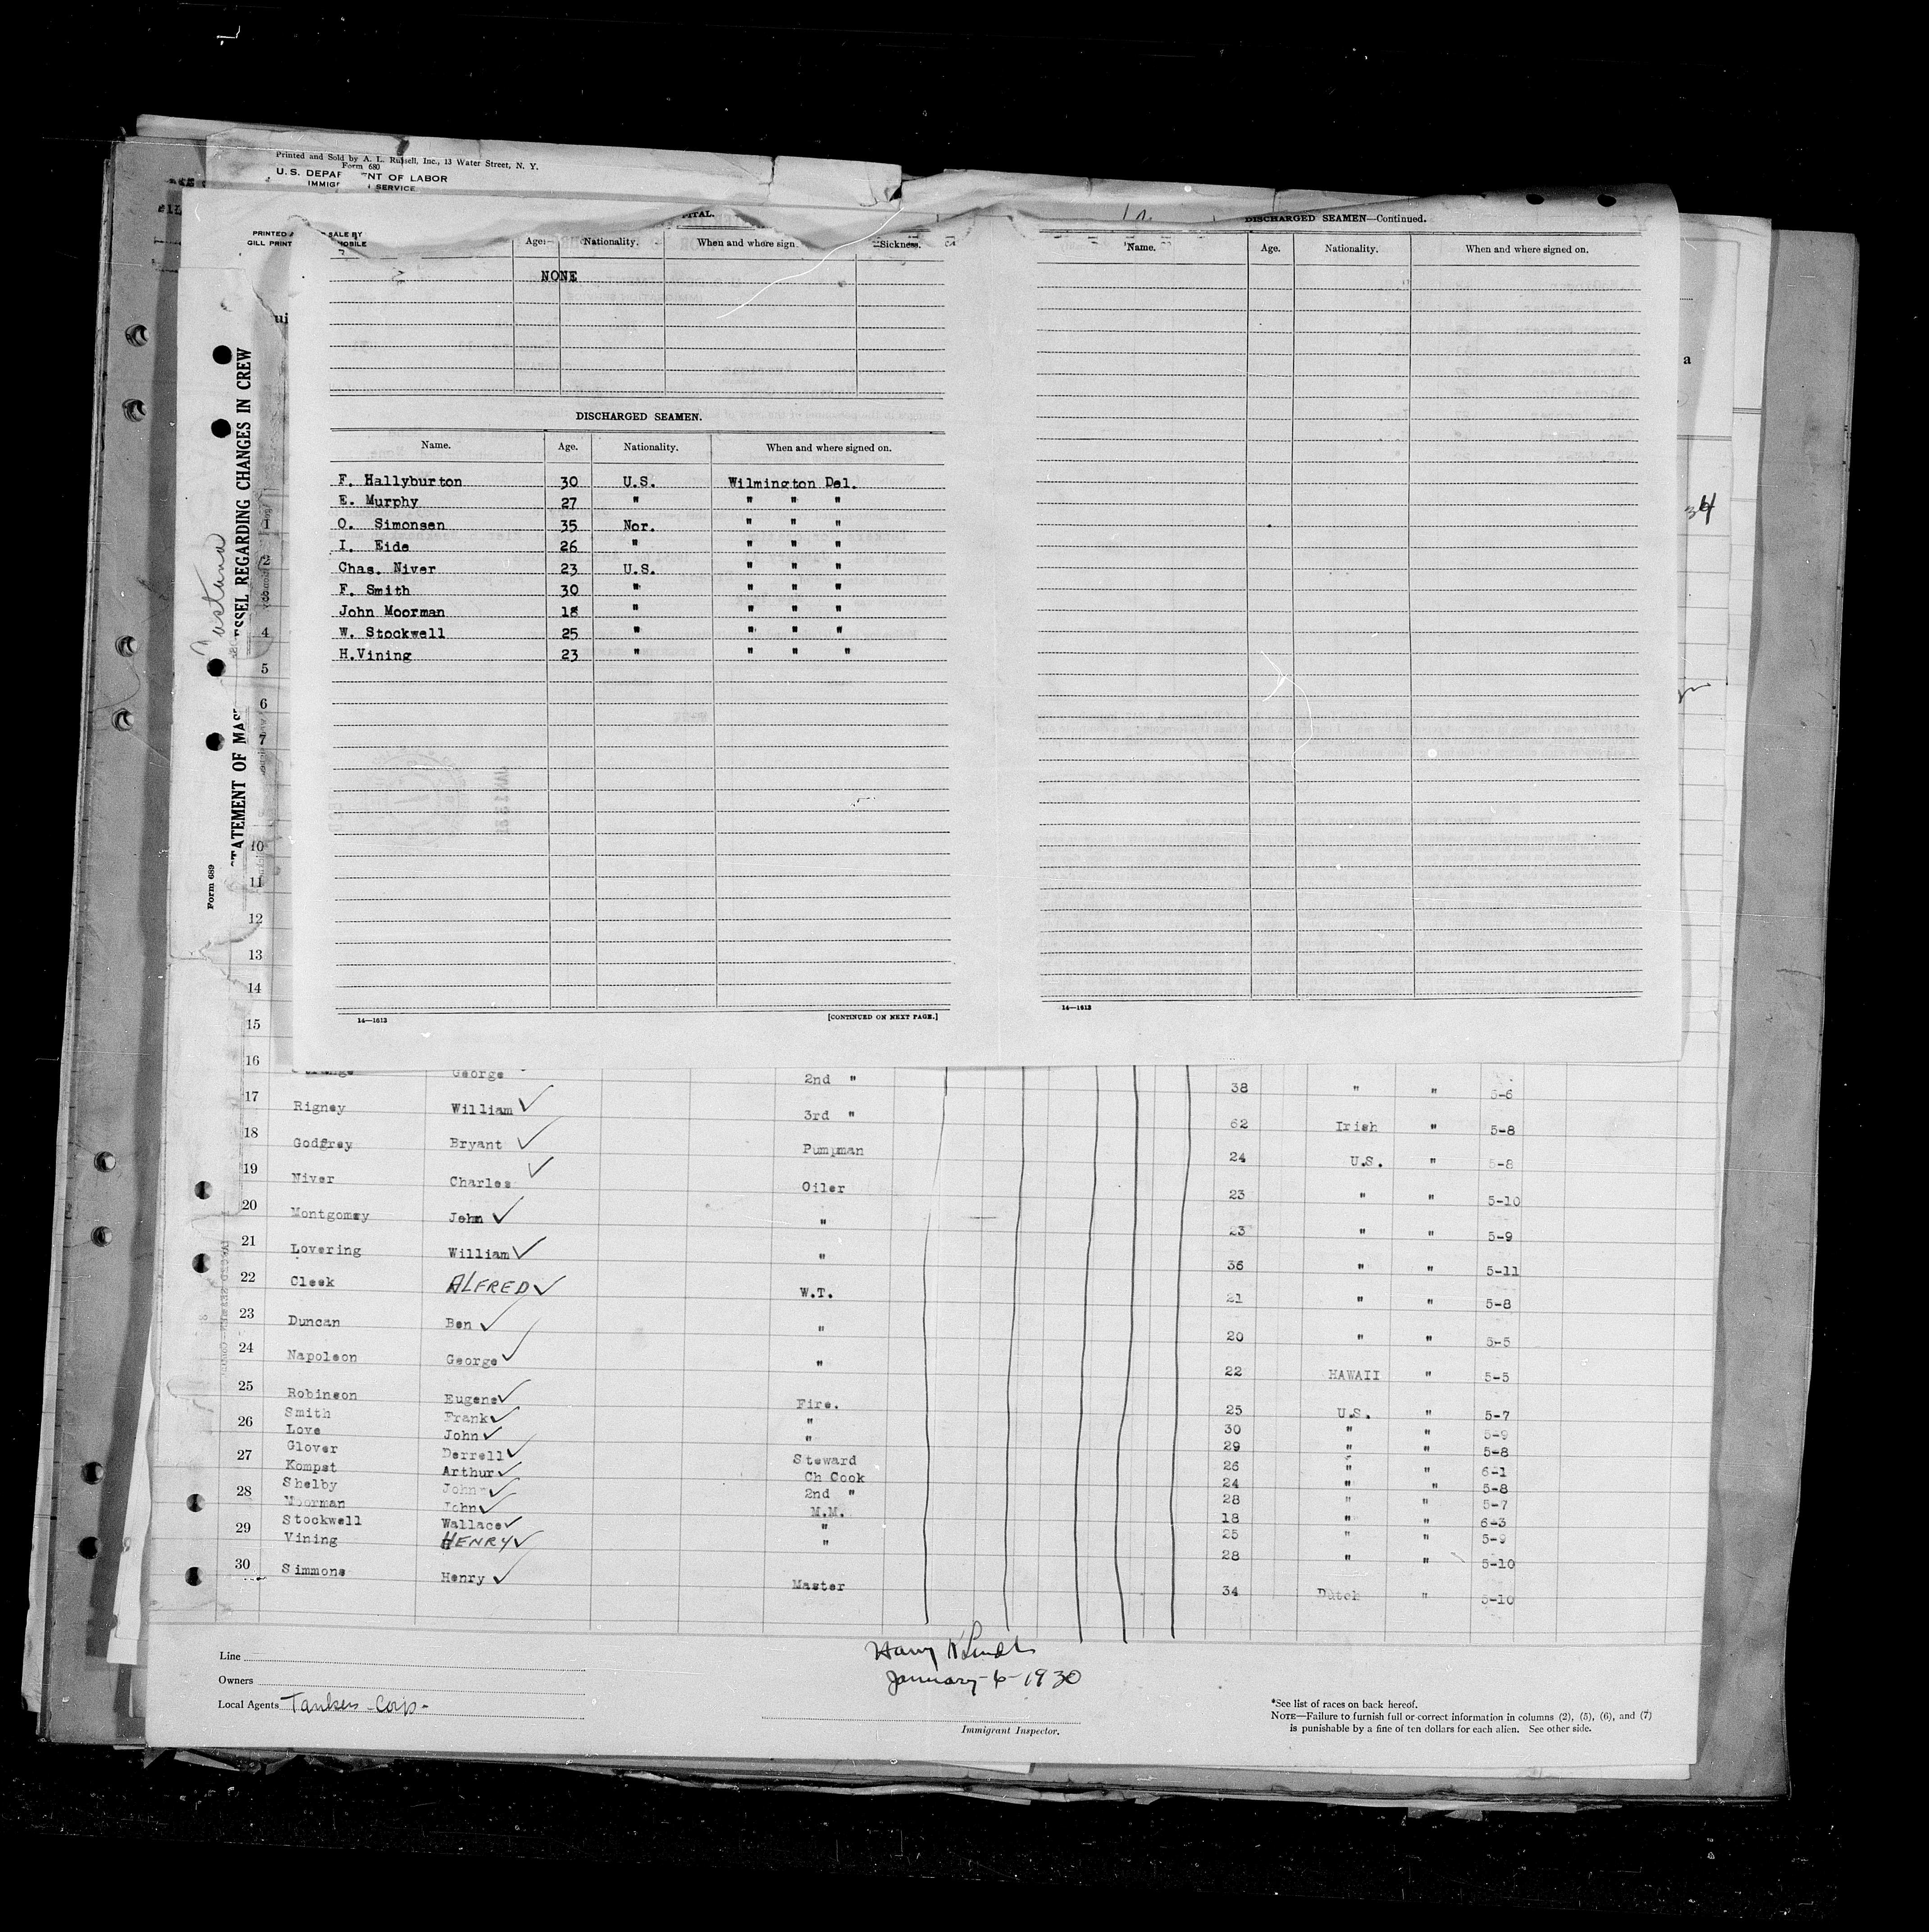 Printed and Sold by A. L. Russell, Inc., 13 Water Street, N. Y.
Form 680
U.S. DEPAR NT OF LABOR
IMMIG SERVICE
PRINTED A SALE BY
GILL PRINT MOBILE
Form 689
TATEMENT OF MAS ESSEL REGARDING CHANGES IN CREW
PITAL.
Age. Nationality. When and where sign Sickness.
NONE
DISCHARGED SEAMEN.
Name. Age. Nationality. When and where signed on.
F. Hallyburton 30 U.S. Wilmington Del.
E. Murphy 27 " " " "
O. Simonsen 35 Nor. " " "
I. Eide 26 " " " "
Chas. Niver 23 U.S. " " "
F. Smith 30 " " " "
John Moorman 18 " " " "
W. Stockwell 25 " " " "
H.Vining 23 " " " "
14—1613 [CONTINUED ON NEXT PAGE.]
DISCHARGED SEAMEN—Continued.
Name. Age. Nationality. When and where signed on.
14—1613
a
1
2
4
5
6
7
10
11
12
13
14
15
16 George 2nd " 38 " " 5-6
17 Rigney William 3rd " 62 Irish " 5-8
18 Godfrey Bryant Pumpman 24 U.S. " 5-8
19 Niver Charles Oiler 23 " " 5-10
20 Montgomey John " 23 " " 5-9
21 Lovering William " 36 " " 5-11
22 Cleek ALFRED W.T. 21 " " 5-8
23 Duncan Ben " 20 " " 5-5
24 Napoleon George " 22 HAWAII " 5-5
25 Robinson Eugene Fire. 25 U.S. " 5-7
Smith Frank " 30 " " 5-9
26 Love John " 29 " " 5-8
Glover Derrell Steward 26 " " 6-1
27 Kompst Arthur Ch Cook 24 " " 5-8
Shelby John 2nd " 28 " " 5-7
28 Moorman John M.M. 18 " " 6-3
Stockwell Wallace " 25 " " 5-9
29 Vining HENRY " 28 " " 5-10
30 Simmons Henry Master 34 Dutch " 5-10
Line
Owners
Local Agents Tankers Corp-
Harry
January-6-1930
Immigrant Inspector.
*See list of races on back hereof.
NOTE—Failure to furnish full or correct information in columns (2), (5), (6), and (7)
is punishable by a fine of ten dollars for each alien. See other side.